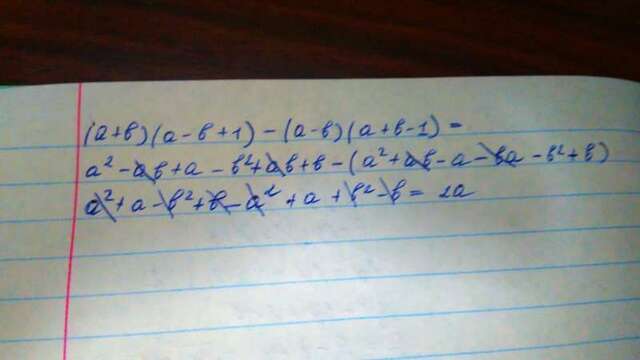 (a+b)(a-b+1)-(a-b)(a+b-1)=
a²-ab+a-b²+ab+b-(a²+ab-a-ba-b²+b)
a²+a-b²+b-a²+a+b²-b=2a